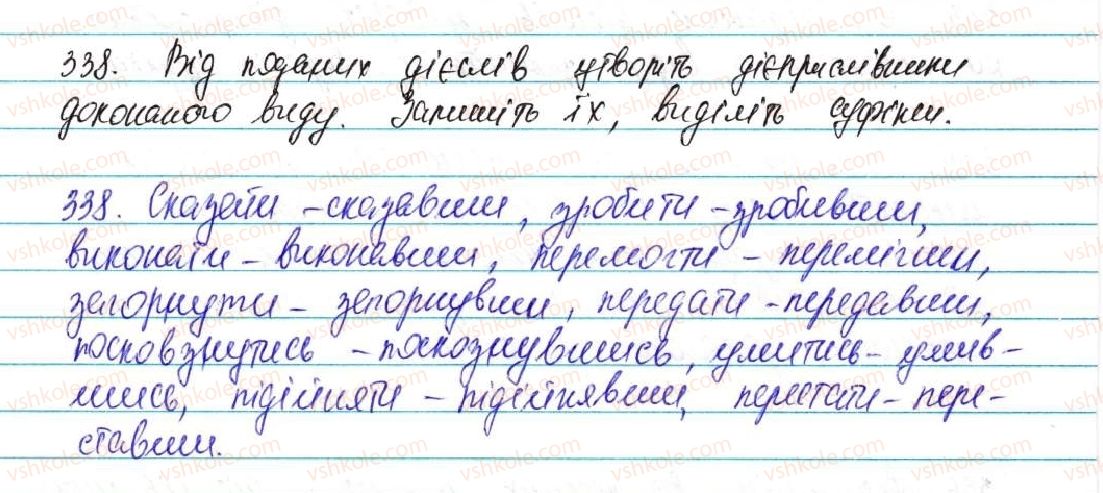 338. Від поданих дієслів утворіть дієприслівники
доконаного виду. Запишіть їх, виділіть суфікси.
338. Сказати - сказавши, зробити - зробивши,
виконати - виконавши, перемогти - перемігши,
загорнути - загорнувши, передати - передавши,
посковзнутись - поскознувшись, умитись - умив-
шись, підійняти - підійнявши, перестати - пере-
ставши.